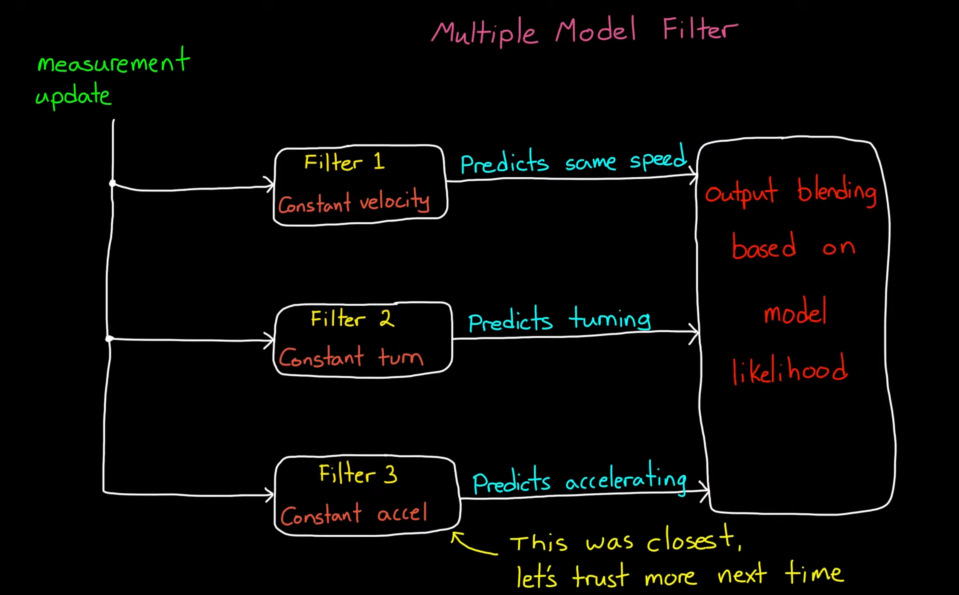 Multiple Model Filter
measurement
update
Filter 1
Constant velocity
Predicts same speed
Filter 2
Constant turn
Predicts turning
Filter 3
Constant accel
Predicts accelerating
Output blending
based on
model
likelihood
This was closest,
let's trust more next time